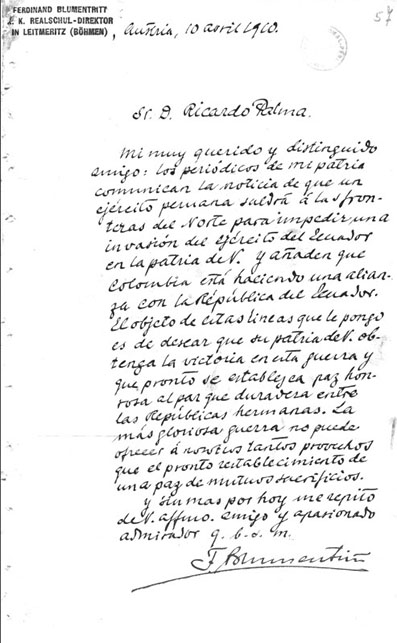 57
FERDINAND BLUMENTRITT
K. K. REALSCHUL-DIREKTOR
IN LEITMERITZ (BÖHMEN)
, Austria, 10 avril 1910.
Sr. D. Ricardo Palma.
Mi muy querido y distinguido
amigo: los periódicos de mi patria
comunican la noticia de que un
ejército peruano saldrá á las fron-
teras del Norte para impedir una
invasión del ejército del Ecuador
en la patria de V. y añaden que
Colombia está haciendo una alian-
za con la República del Ecuador.
El objeto de estas lineas que le pongo
es de desear que su patria de V. ob-
tenga la victoria en esta guerra y
que pronto se establezca paz hon-
rosa al par que duradera entre
las Repúblicas hermanas. La
más gloriosa guerra no puede
ofrecer á nosotros tantos provechos
que el pronto restablecimiento de
una paz de mutuos sacrificios.
y sin mas por hoy me repito
de V. affmo. amigo y apasionado
admirador q. b. s. m.
F. Blumentritt